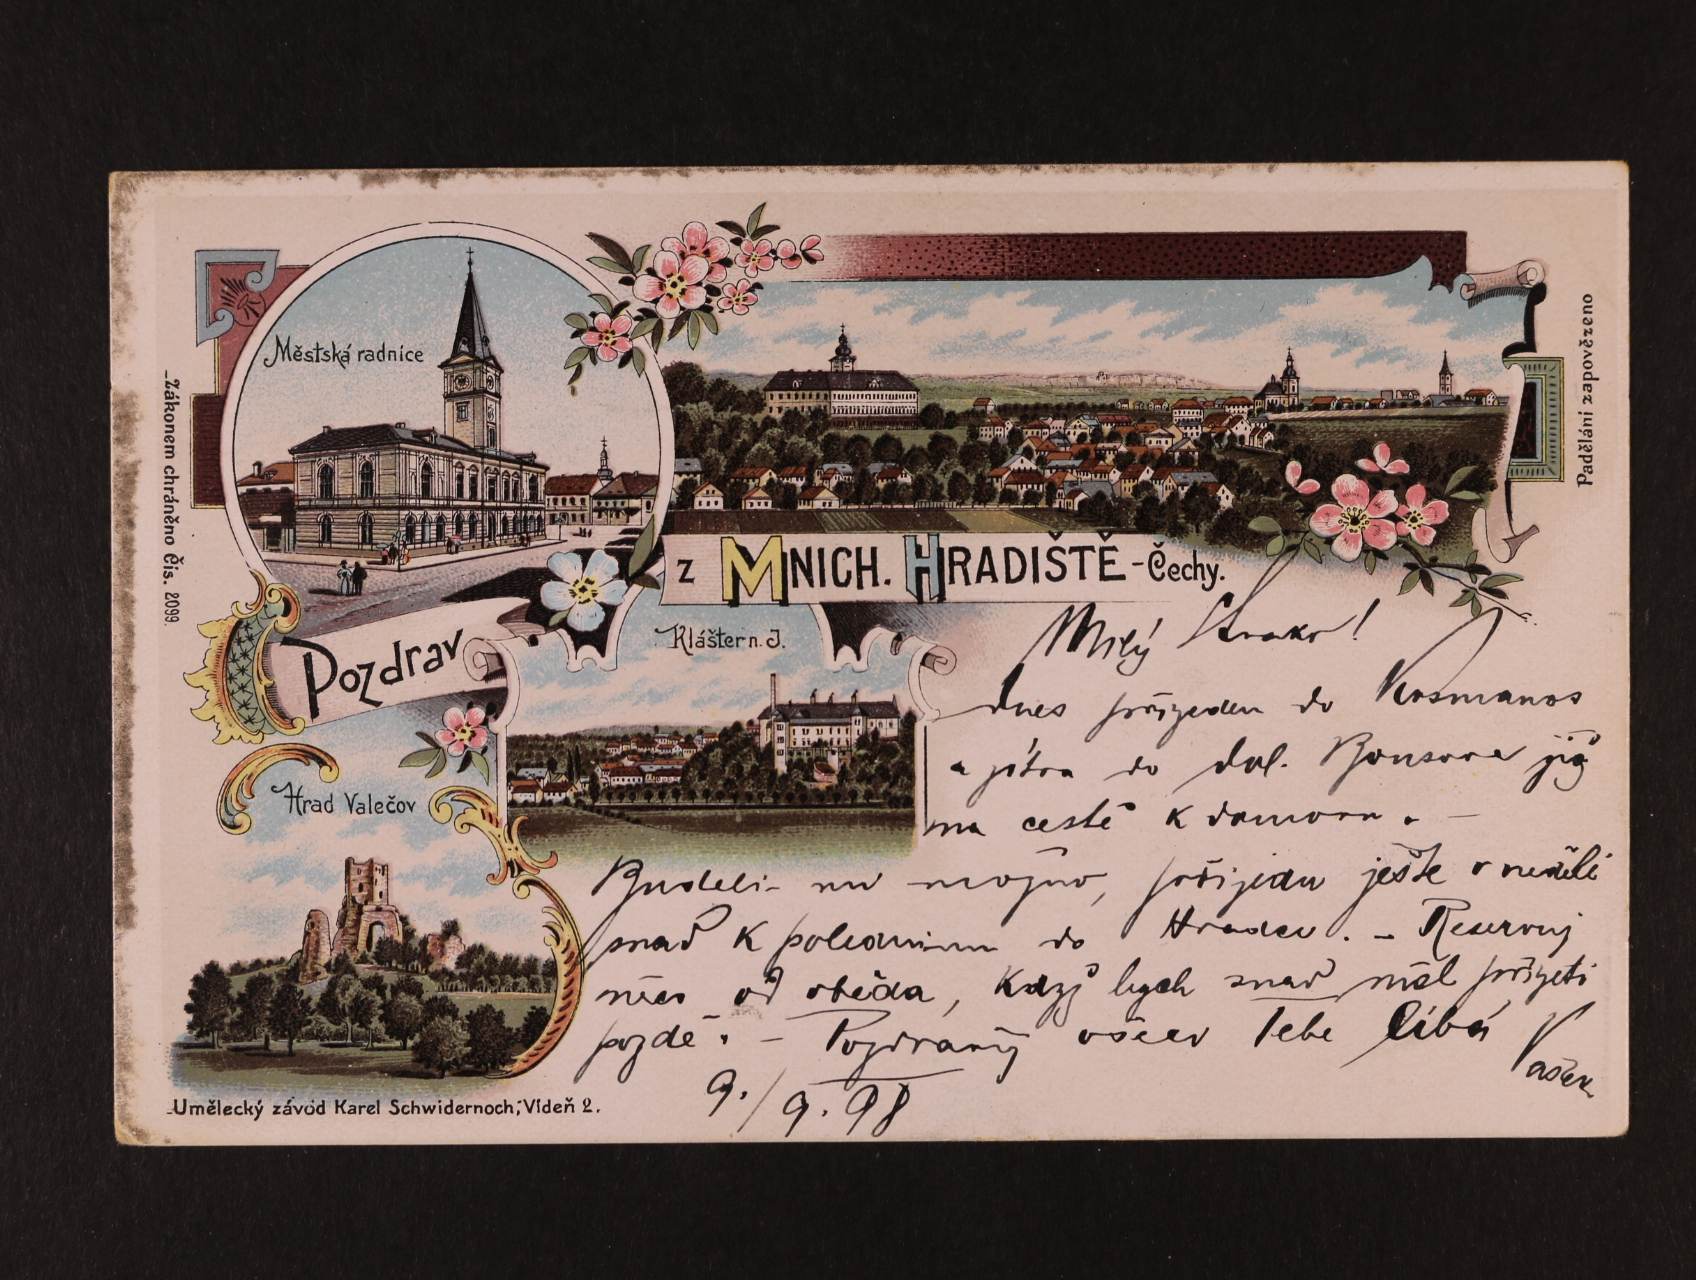 Městská radnice
Pozdrav
z Mnich. Hradiště - Čechy.
Klášter n. J.
Hrad Valečov
Zákonem chráněno čis. 2099.
Padělání zapovězeno
Umělecký závod Karel Schwidernoch, Vídeň 2.
Milý Strako!
dnes přijedu do Kosmanos
a zítra do dol. Bousova již
na cestě k domovu. -
Bude-li mi možno, přijedu ještě v neděli
snad k polednímu do Hradce. - Reservuj
něco od oběda, když bych snad měl přijeti
pozdě. - Pozdravuj
Tebe líbá
Vašek
9./9. 98